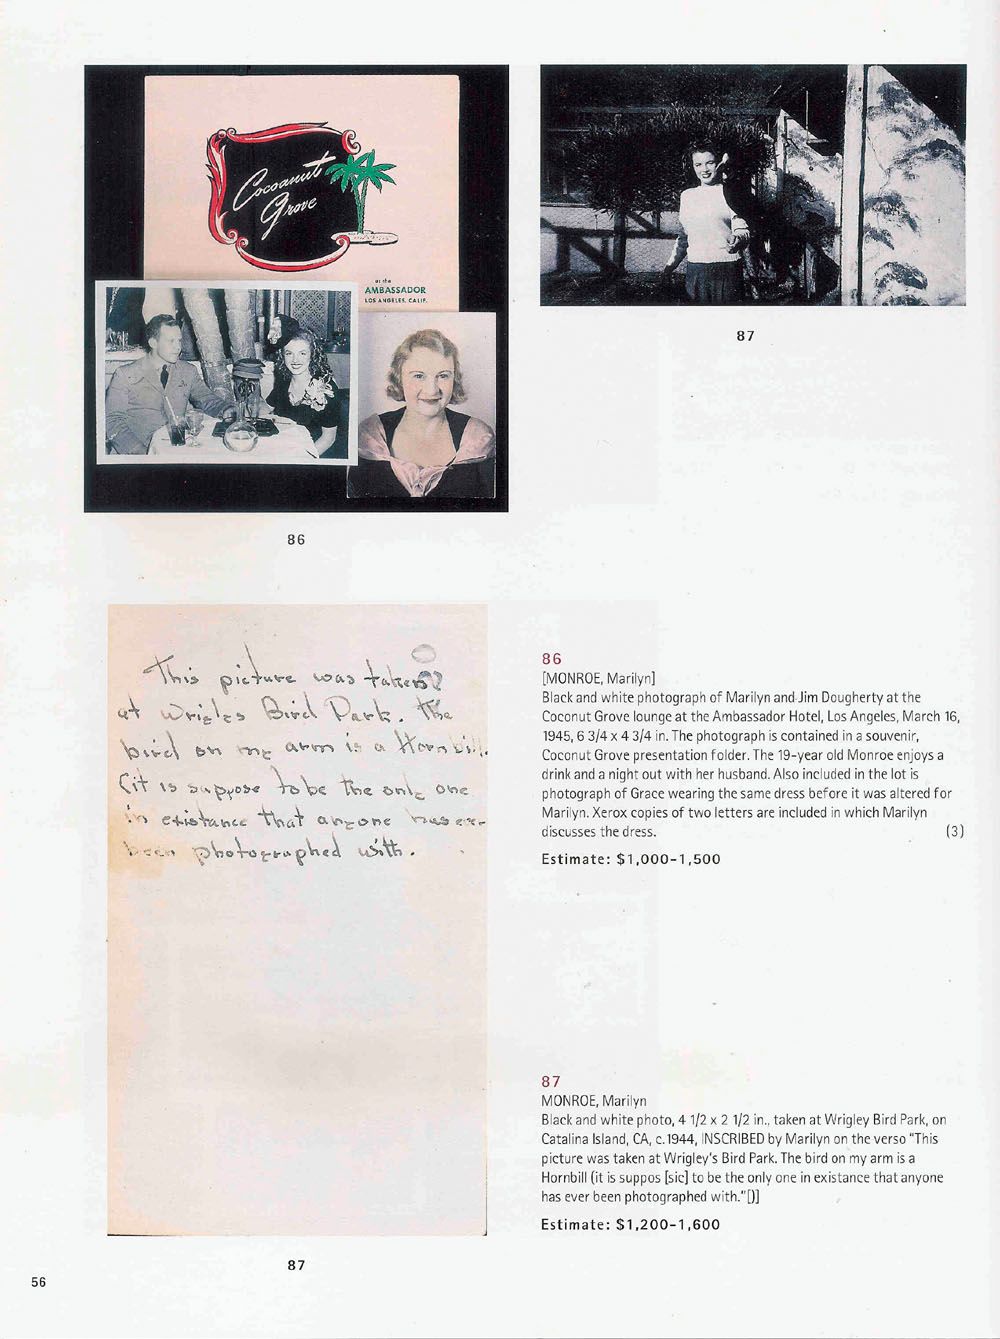 Cocoanut
Grove
at the
AMBASSADOR
LOS ANGELES, CALIF.
87
86
This picture was taken
at Wrigles Bird Park. The
bird on my arm is a Hornbill.
(it is suppose to be the only one
in existance that anyone has ever
been photographed with.
86
[MONROE, Marilyn]
Black and white photograph of Marilyn and Jim Dougherty at the
Coconut Grove lounge at the Ambassador Hotel, Los Angeles, March 16,
1945, 6 3/4 x 4 3/4 in. The photograph is contained in a souvenir,
Coconut Grove presentation folder. The 19-year old Monroe enjoys a
drink and a night out with her husband. Also included in the lot is
photograph of Grace wearing the same dress before it was altered for
Marilyn. Xerox copies of two letters are included in which Marilyn
discusses the dress. (3)
Estimate: $1,000-1,500
87
MONROE, Marilyn
Black and white photo, 4 1/2 x 2 1/2 in., taken at Wrigley Bird Park, on
Catalina Island, CA, c.1944, INSCRIBED by Marilyn on the verso "This
picture was taken at Wrigley's Bird Park. The bird on my arm is a
Hornbill (it is suppos [sic] to be the only one in existance that anyone
has ever been photographed with."[)]
Estimate: $1,200-1,600
87
56